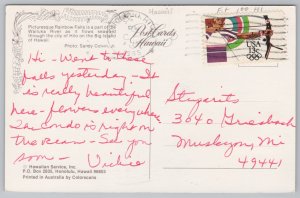 Picturesque Rainbow Falls is a part of the
Wailuku River as it flows seaward
through the city of Hilo on the Big Island
of Hawaii.
Photo: Sandy Colvin
Post Cards
Hawaii
USA
Hi - Went to these
falls yesterday - It
is really beautiful
here - flowers everywhere
Our condo is right on
the ocean - See you
soon - Vickie
3040
Muskegon, Mi
49441
© Hawaiian Service, Inc.
P.O. Box 2835, Honolulu, Hawaii 96803
Printed in Australia by Colorscans